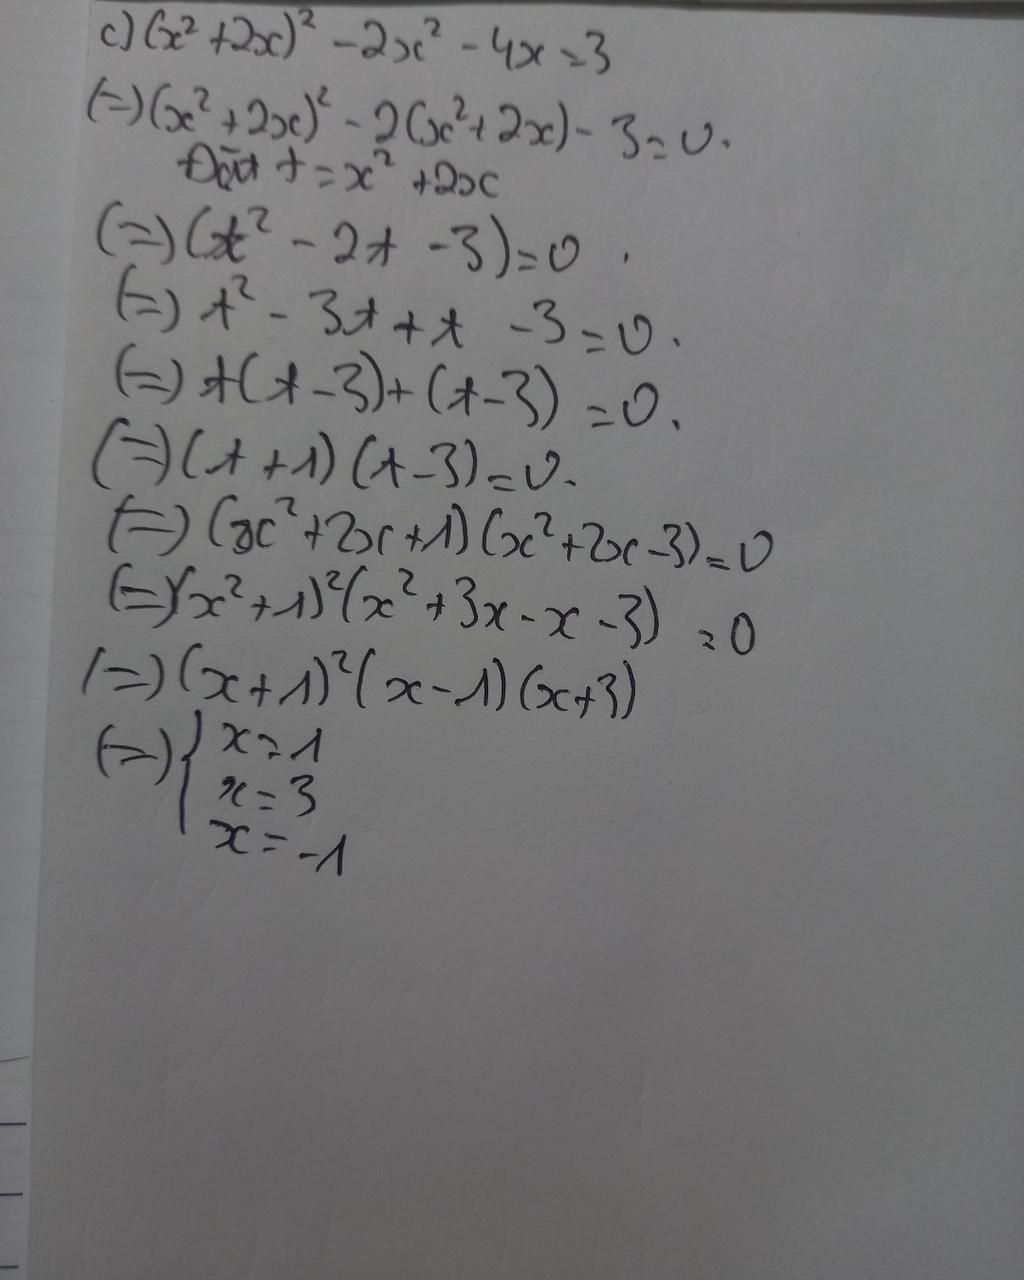 c) (x² + 2x)² - 2x² - 4x = 3
(=) (x² + 2x)² - 2(x² + 2x) - 3 = 0.
Đặt t = x² + 2x
(=) (t² - 2t - 3) = 0.
(=) t² - 3t + t - 3 = 0.
(=) t(t - 3) + (t - 3) = 0.
(=) (t + 1) (t - 3) = 0.
(=) (x² + 2x + 1) (x² + 2x - 3) = 0
(=) (x² + 1)² (x² + 3x - x - 3) = 0
(=) (x + 1)² (x - 1) (x + 3)
(=) { x = 1
x = 3
x = -1